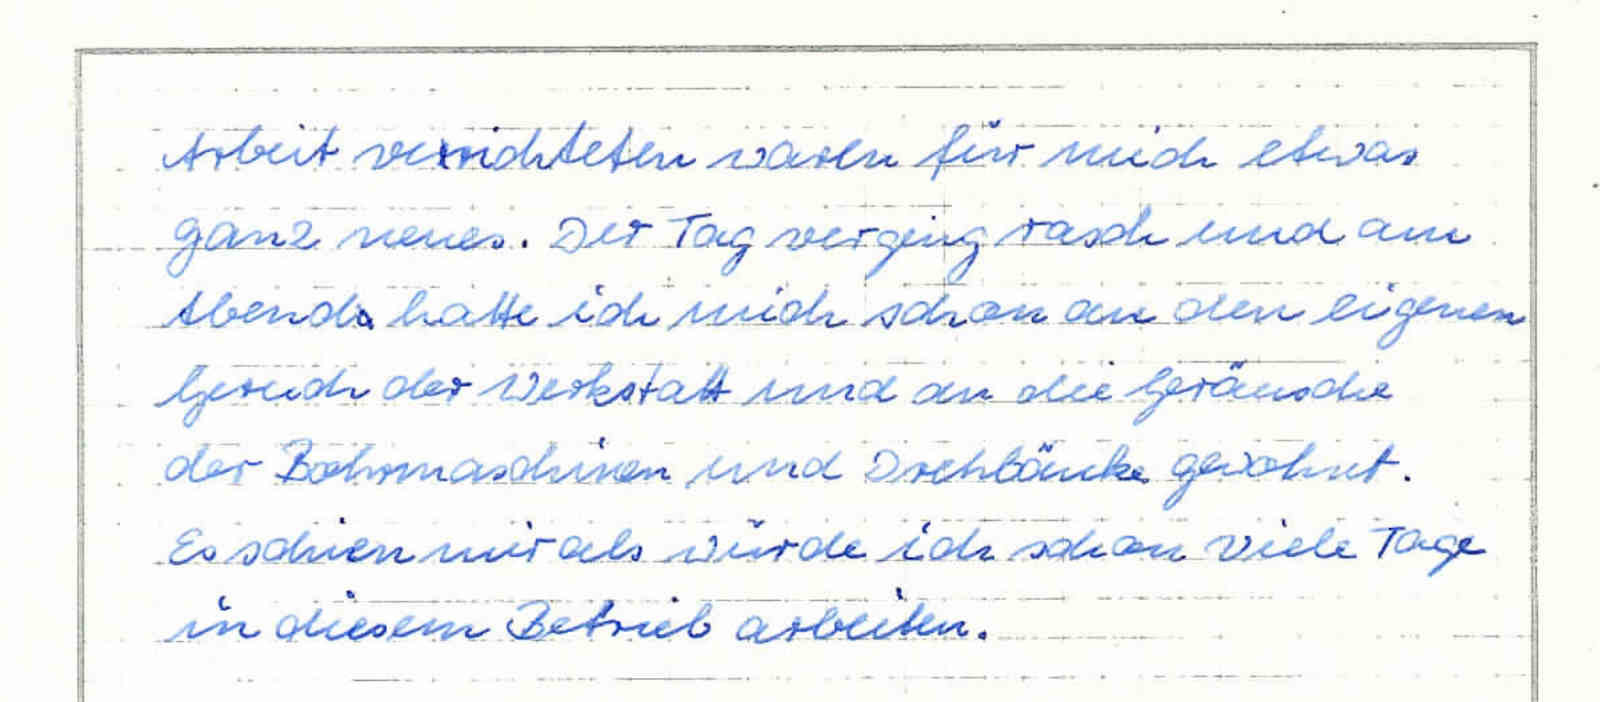 Arbeit verrichteten waren für mich etwas
ganz neues. Der Tag verging rasch und am
Abend hatte ich mich schon an den eigenen
Geruch der Werkstatt und an die Geräusche
der Bohrmaschinen und Drehbänke gewohnt.
Es schien mir als würde ich schon viele Tage
in diesem Betrieb arbeiten.